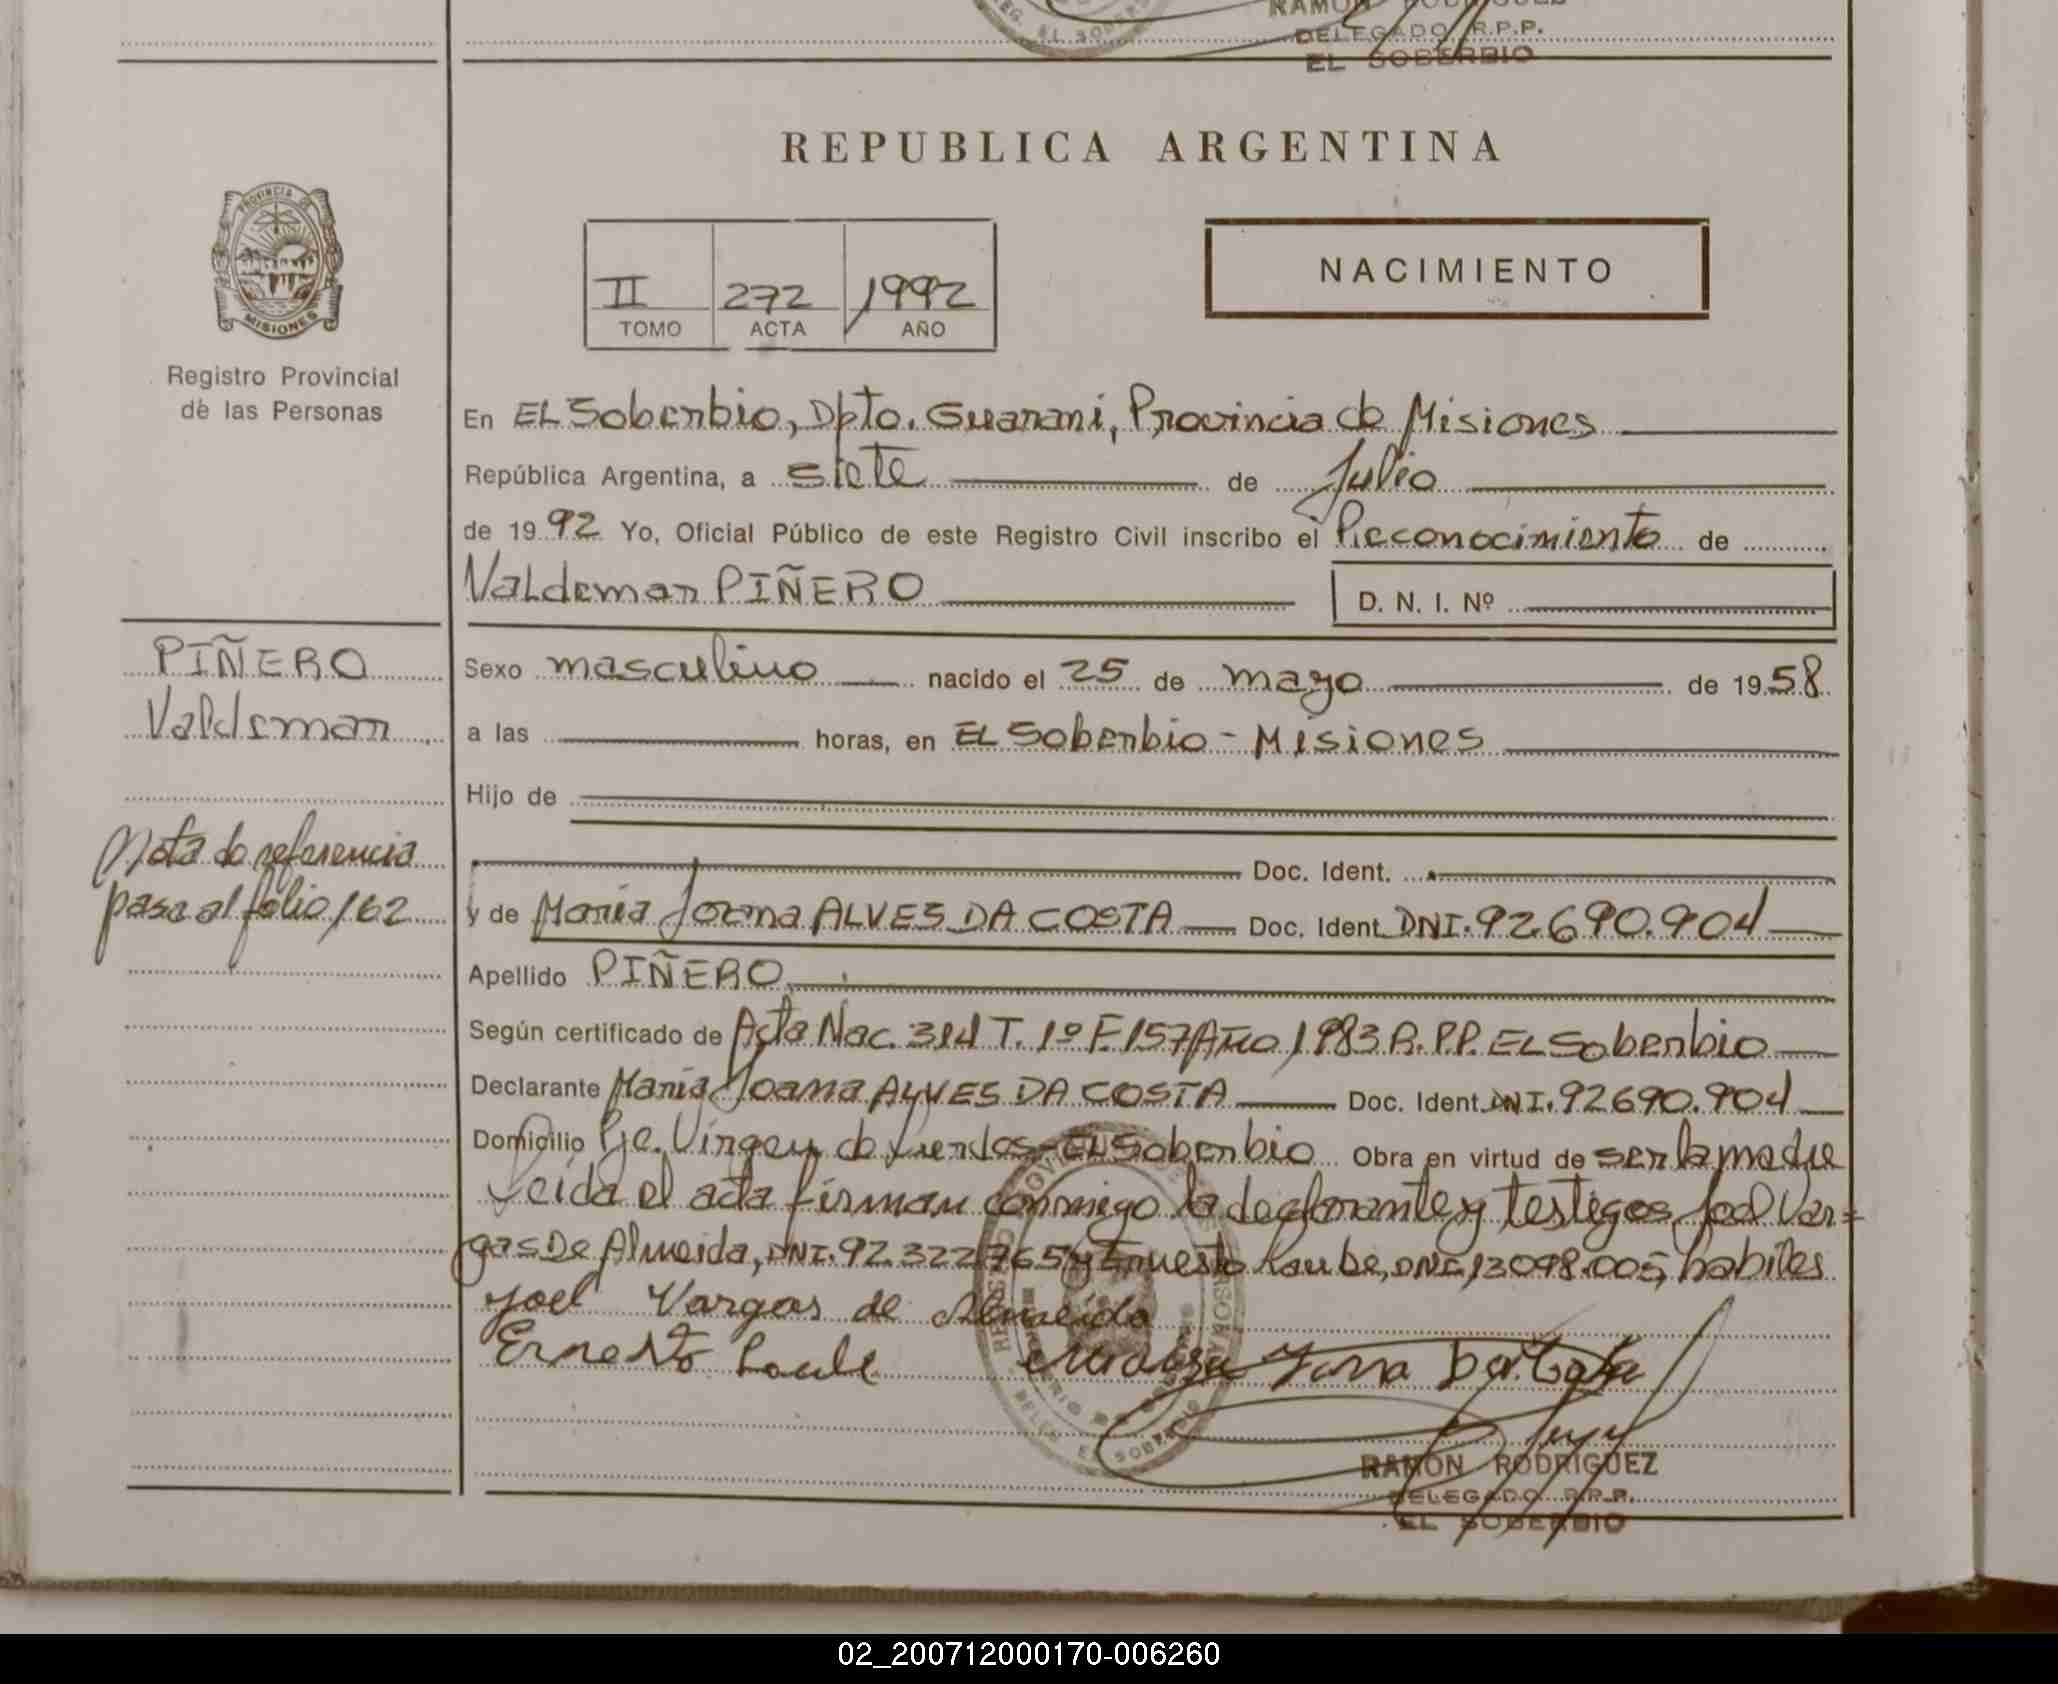 RAMON RODRIGUEZ
REG. EL SOBERBIO
DELEGADO R.P.P.
EL SOBERBIO
REPUBLICA ARGENTINA
PROVINCIA DE
MISIONES
II 272 1992
TOMO ACTA AÑO
NACIMIENTO
Registro Provincial
de las Personas
En EL Soberbio, Dpto. Guarani, Provincia de Misiones
República Argentina, a siete de Julio
de 1992 Yo, Oficial Público de este Registro Civil inscribo el Reconocimiento de
Valdemar PIÑERO D. N. I. Nº
PIÑERO
Valdemar
Nota de referencia
pasa al folio 162
Sexo masculino nacido el 25 de mayo de 1958
a las horas, en EL Soberbio - Misiones
Hijo de
Doc. Ident.
y de Maria Joana ALVES DA COSTA Doc. Ident. DNI. 92.690.904
Apellido PIÑERO
Según certificado de Acta Nac. 314 T. 1º F. 157 Año 1983 R.P.P. EL Soberbio
Declarante Maria Joana ALVES DA COSTA Doc. Ident. DNI. 92690.904
Domicilio Pje. Virgen de Lurdes - EL Soberbio Obra en virtud de ser la madre
Leida el acta firman conmigo la declarante y testigos Joel Var=
gas De Almeida, DNI. 92.322.765 y Ernesto Laube, DNI. 13098.005, habiles
Joel Vargas de Almeida
Ernesto Laube
RAMON RODRIGUEZ
DELEGADO R.P.P.
EL SOBERBIO
02_200712000170-006260